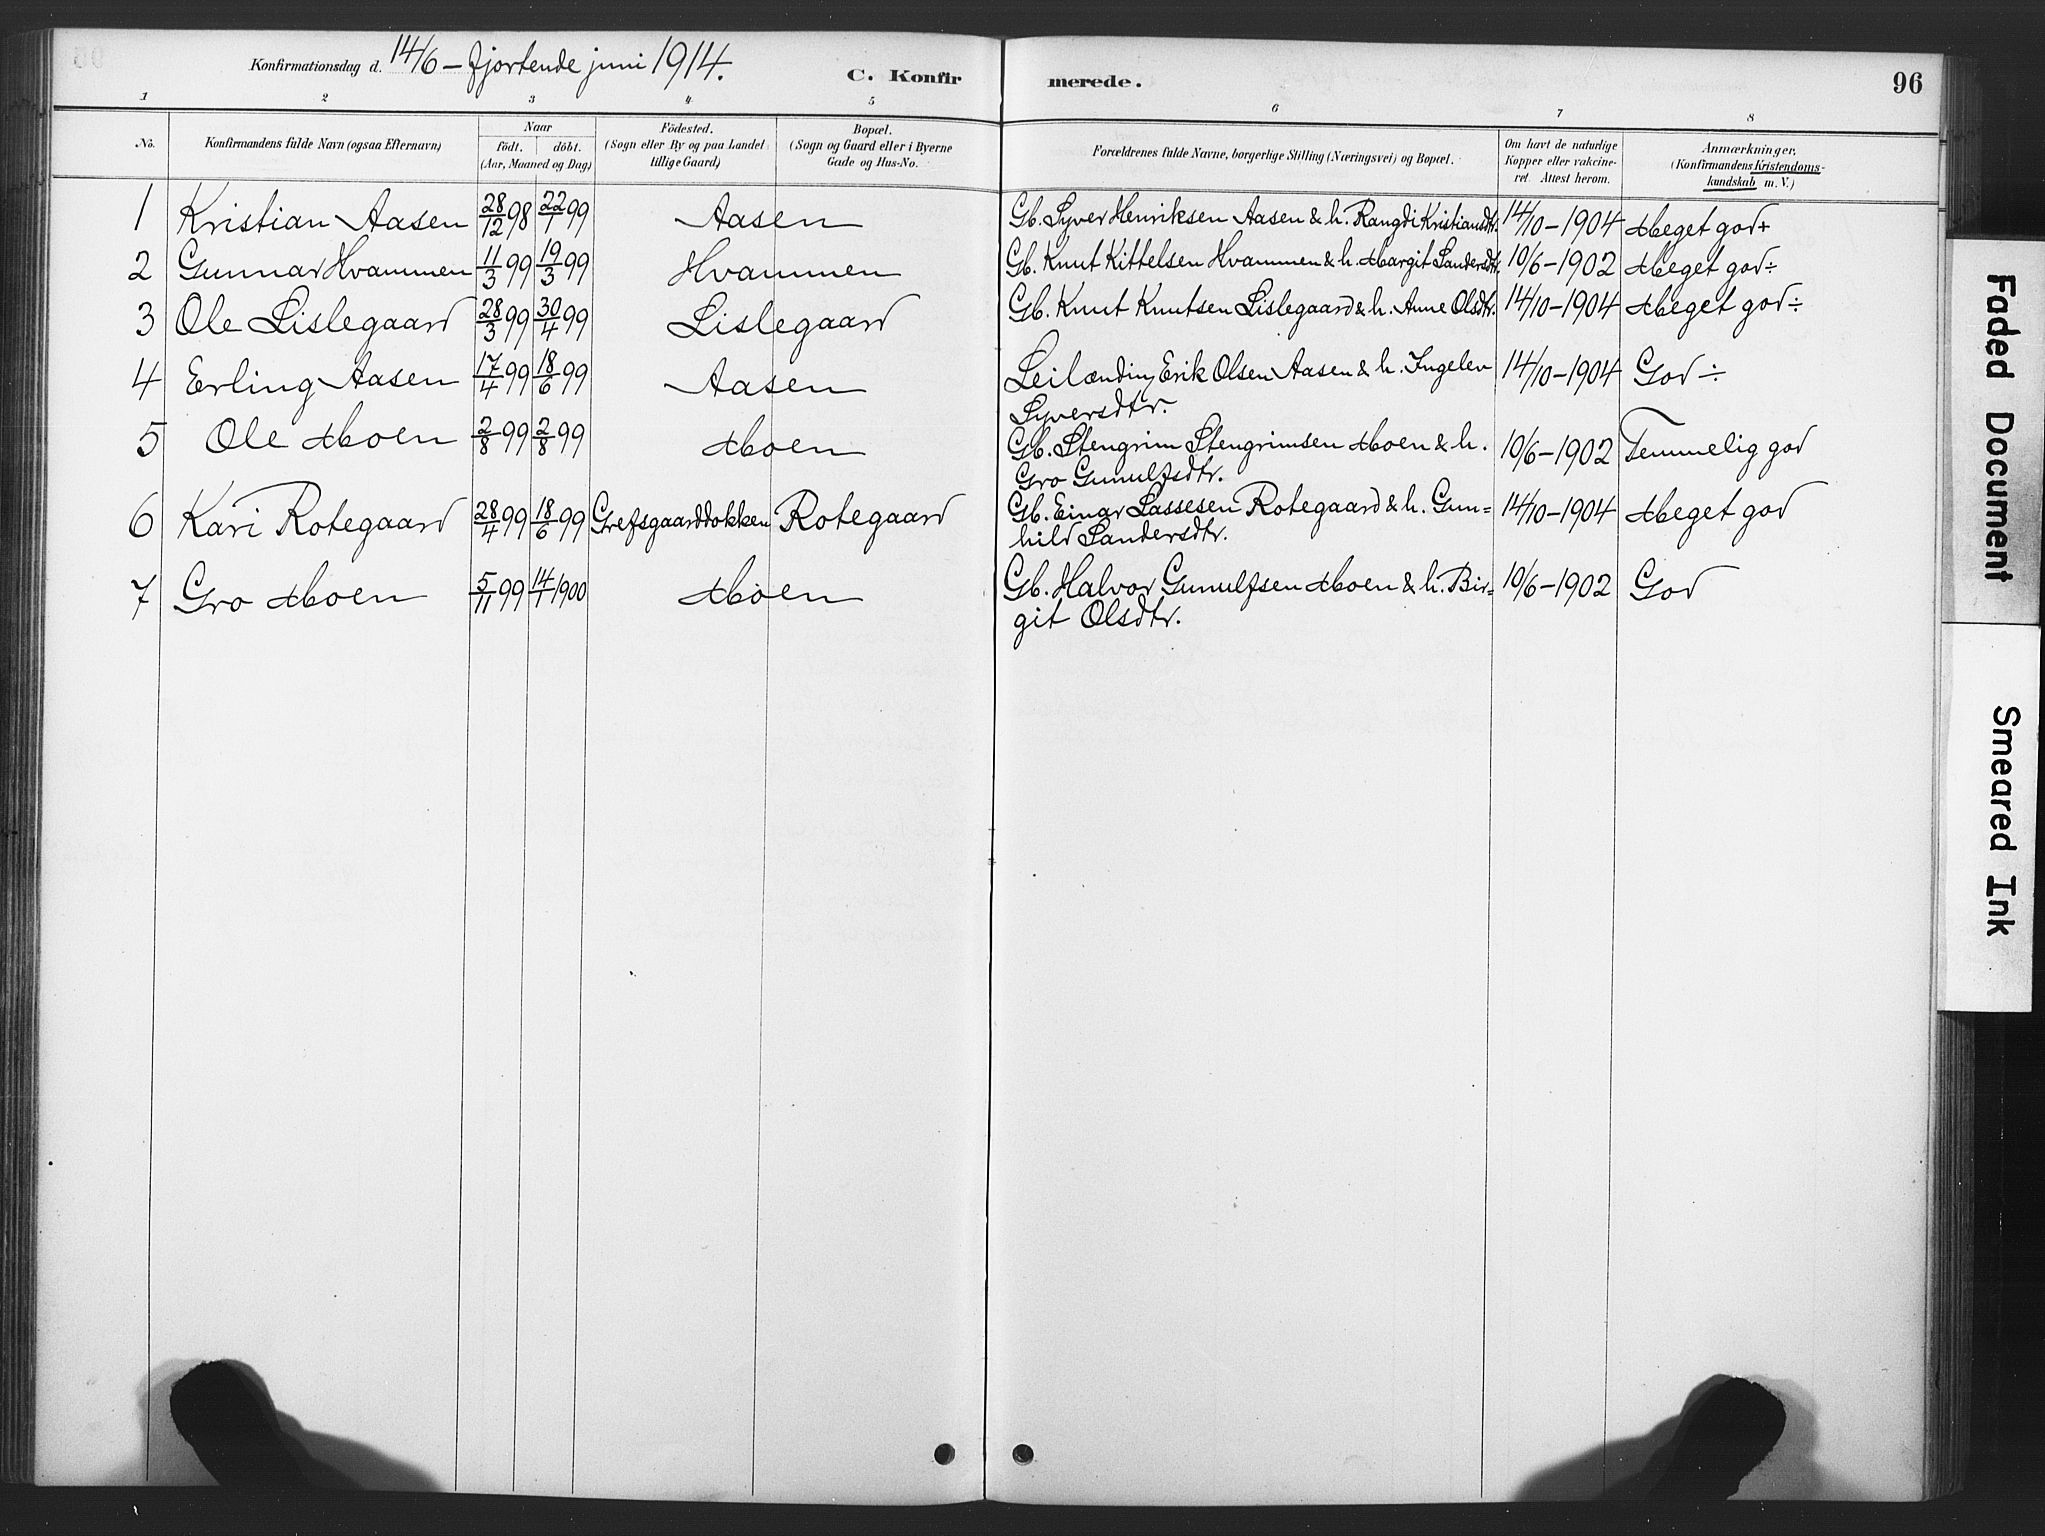 Konfirmationsdag d. 14/6 – fjortende juni 1914.
C. Konfirmerede.
96
1 2 3 4 5 6 7 8
No. | Konfirmandens fulde Navn (ogsaa Efternavn) | Naar født. døbt. (Aar, Maaned og Dag) | Födested. (Sogn eller By og paa Landet tillige Gaard) | Bopæl. (Sogn og Gaard eller i Byerne Gade og Hus-No. | Forældrenes fulde Navne, borgerlige Stilling (Næringsvei) og Bopæl. | Om havt de naturlige Kopper eller vakcineret. Attest herom. | Anmærkninger. (Konfirmandens Kristendomskundskab m. V.)
1 Kristian Aasen 28/12 98 22/1 99 Aasen Gb. Syver Henriksen Aasen & h. Rangdi Kristiansdtr. 14/10–1904 Meget god+
2 Gunnar Hvammen 11/3 99 19/3 99 Hvammen Gb. Knut Kittelsen Hvammen & h. Margit Sandersdtr. 10/6–1902 Meget god÷
3 Ole Lislegaard 28/3 99 30/4 99 Lislegaard Gb. Knut Knutsen Lislegaard & h. Anne Olsdtr. 14/10–1904 Meget god÷
4 Erling Aasen 17/4 99 18/6 99 Aasen Leilænding Erik Olsen Aasen & h. Ingelev 14/10–1904 God ÷
Syversdtr.
5 Ole Moen 2/8 99 2/8 99 Moen Gb. Stengrim Stengrimsen Moen & h. 10/6–1902 Temmelig god
Gro Gunulfsdtr.
6 Kari Rotegaard 28/4 99 18/6 99 Grefsgaarddokken Rotegaard Gb. Einar Lassesen Rotegaard & h. Gun= 14/10–1904 Meget god
hild Sandersdtr.
7 Gro Moen 5/11 99 14/1 1900 Moen Gb. Halvor Gunulfsen Moen & h. Bir= 10/6–1902 God
git Olsdtr.
Faded Document
Smeared Ink